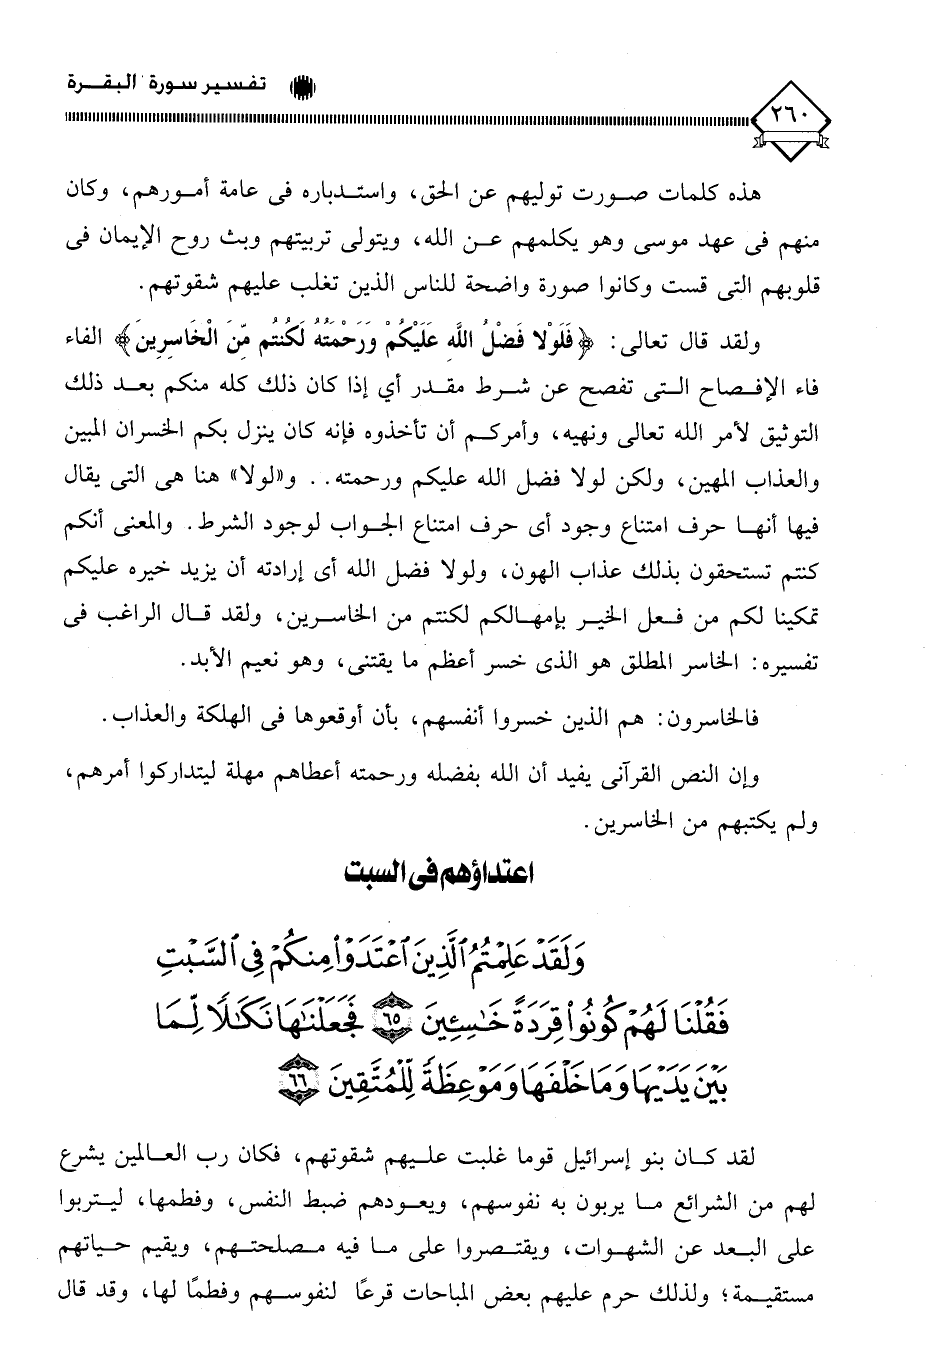 تفسير سورة البقرة
٢٦٠
هذه كلمات صورت توليهم عن الحق، واستدباره فى عامة أمورهم، وكان
منهم فى عهد موسى وهو يكلمهم عن الله، ويتولى تربيتهم وبث روح الإيمان فى
قلوبهم التى قست وكانوا صورة واضحة للناس الذين تغلب عليهم شقوتهم.
ولقد قال تعالى: ﴿فَلَوْلا فَضْلُ اللَّهِ عَلَيْكُمْ وَرَحْمَتُهُ لَكُنتُم مِّنَ الْخَاسِرِينَ﴾ الفاء
فاء الإفصاح التى تفصح عن شرط مقدر أي إذا كان ذلك كله منكم بعد ذلك
التوثيق لأمر الله تعالى ونهيه، وأمركم أن تأخذوه فإنه كان ينزل بكم الخسران المبين
والعذاب المهين، ولكن لولا فضل الله عليكم ورحمته.. و«لولا» هنا هى التى يقال
فيها أنها حرف امتناع وجود أى حرف امتناع الجواب لوجود الشرط. والمعنى أنكم
كنتم تستحقون بذلك عذاب الهون، ولولا فضل الله أى إرادته أن يزيد خيره عليكم
تمكينا لكم من فعل الخير بإمهالكم لكنتم من الخاسرين، ولقد قال الراغب فى
تفسيره: الخاسر المطلق هو الذى خسر أعظم ما يقتنى، وهو نعيم الأبد.
فالخاسرون: هم الذين خسروا أنفسهم، بأن أوقعوها فى الهلكة والعذاب.
وإن النص القرآنى يفيد أن الله بفضله ورحمته أعطاهم مهلة ليتداركوا أمرهم،
ولم يكتبهم من الخاسرين.
اعتداؤهم فى السبت
وَلَقَدْ عَلِمْتُمُ ٱلَّذِينَ ٱعْتَدَوْا۟ مِنكُمْ فِى ٱلسَّبْتِ
فَقُلْنَا لَهُمْ كُونُوا۟ قِرَدَةً خَٰسِـِٔينَ ٦٥ فَجَعَلْنَٰهَا نَكَٰلًا لِّمَا
بَيْنَ يَدَيْهَا وَمَا خَلْفَهَا وَمَوْعِظَةً لِّلْمُتَّقِينَ ٦٦
لقد كان بنو إسرائيل قوما غلبت عليهم شقوتهم، فكان رب العالمين يشرع
لهم من الشرائع ما يربون به نفوسهم، ويعودهم ضبط النفس، وفطمها، ليتربوا
على البعد عن الشهوات، ويقتصروا على ما فيه مصلحتهم، ويقيم حياتهم
مستقيمة؛ ولذلك حرم عليهم بعض المباحات قرعًا لنفوسهم وفطمًا لها، وقد قال